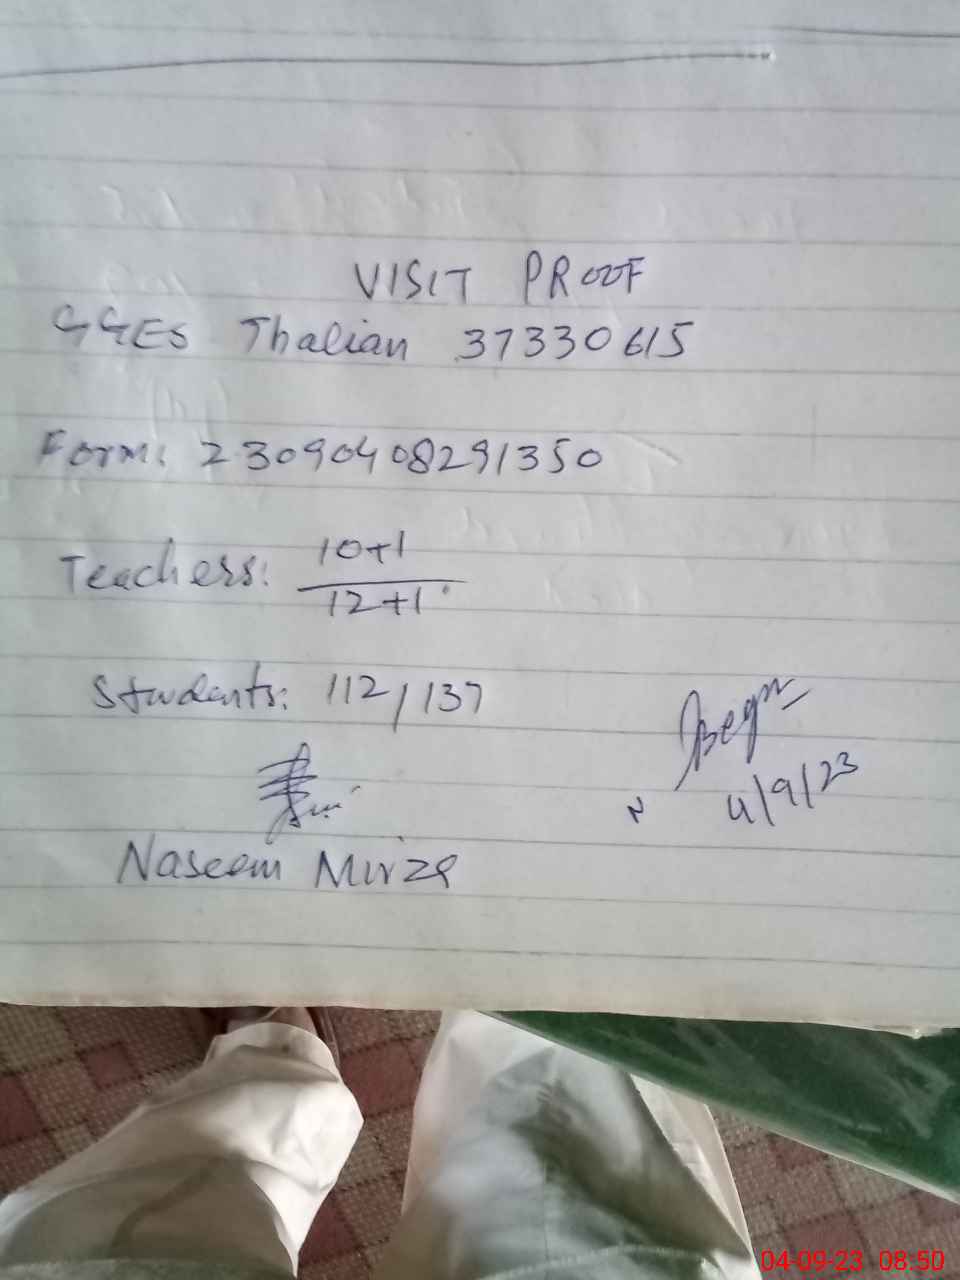 VISIT PROOF
GGES Thalian 37330615
Form: 23090408291350
Teachers: 10+1
12+1
Students: 112/137
Begm
N 4/9/23
Naseem Mirza
04-09-23 08:50